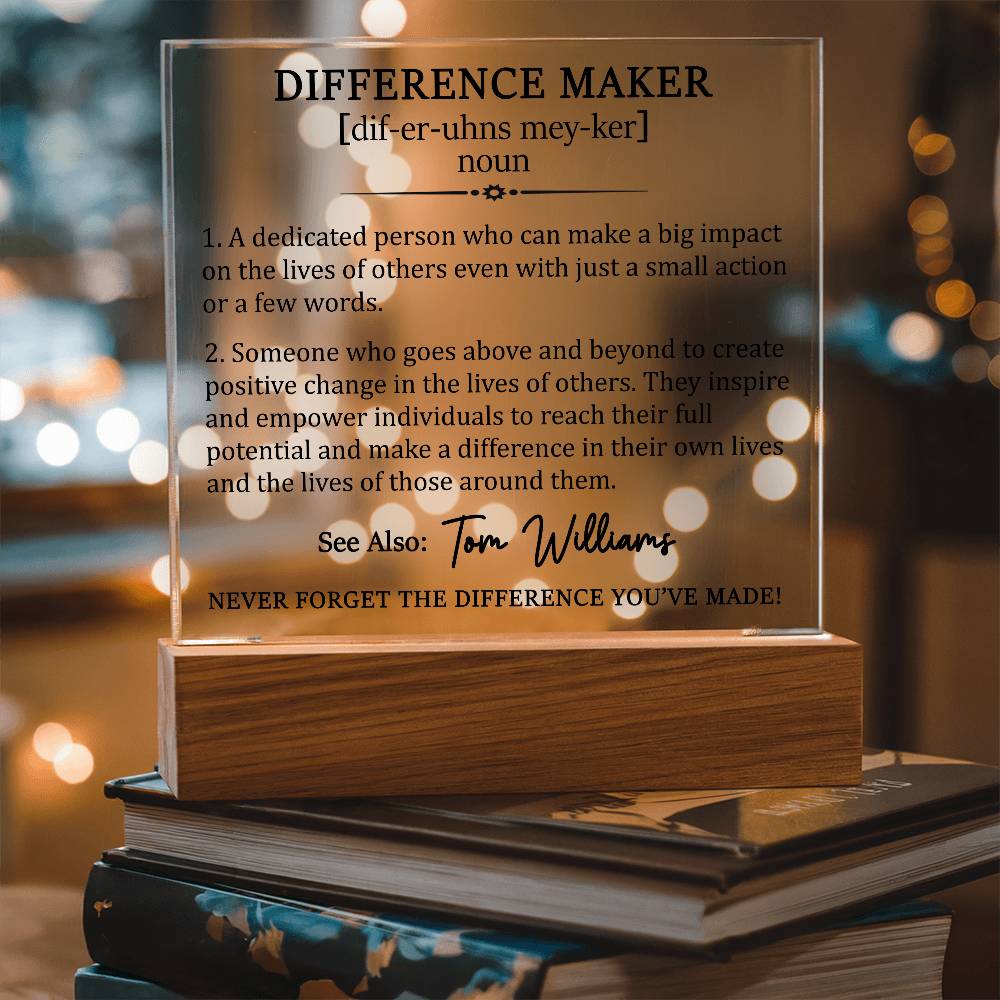 DIFFERENCE MAKER
[dif-er-uhns mey-ker]
noun
1. A dedicated person who can make a big impact
on the lives of others even with just a small action
or a few words.
2. Someone who goes above and beyond to create
positive change in the lives of others. They inspire
and empower individuals to reach their full
potential and make a difference in their own lives
and the lives of those around them.
See Also: Tom Williams
NEVER FORGET THE DIFFERENCE YOU'VE MADE!